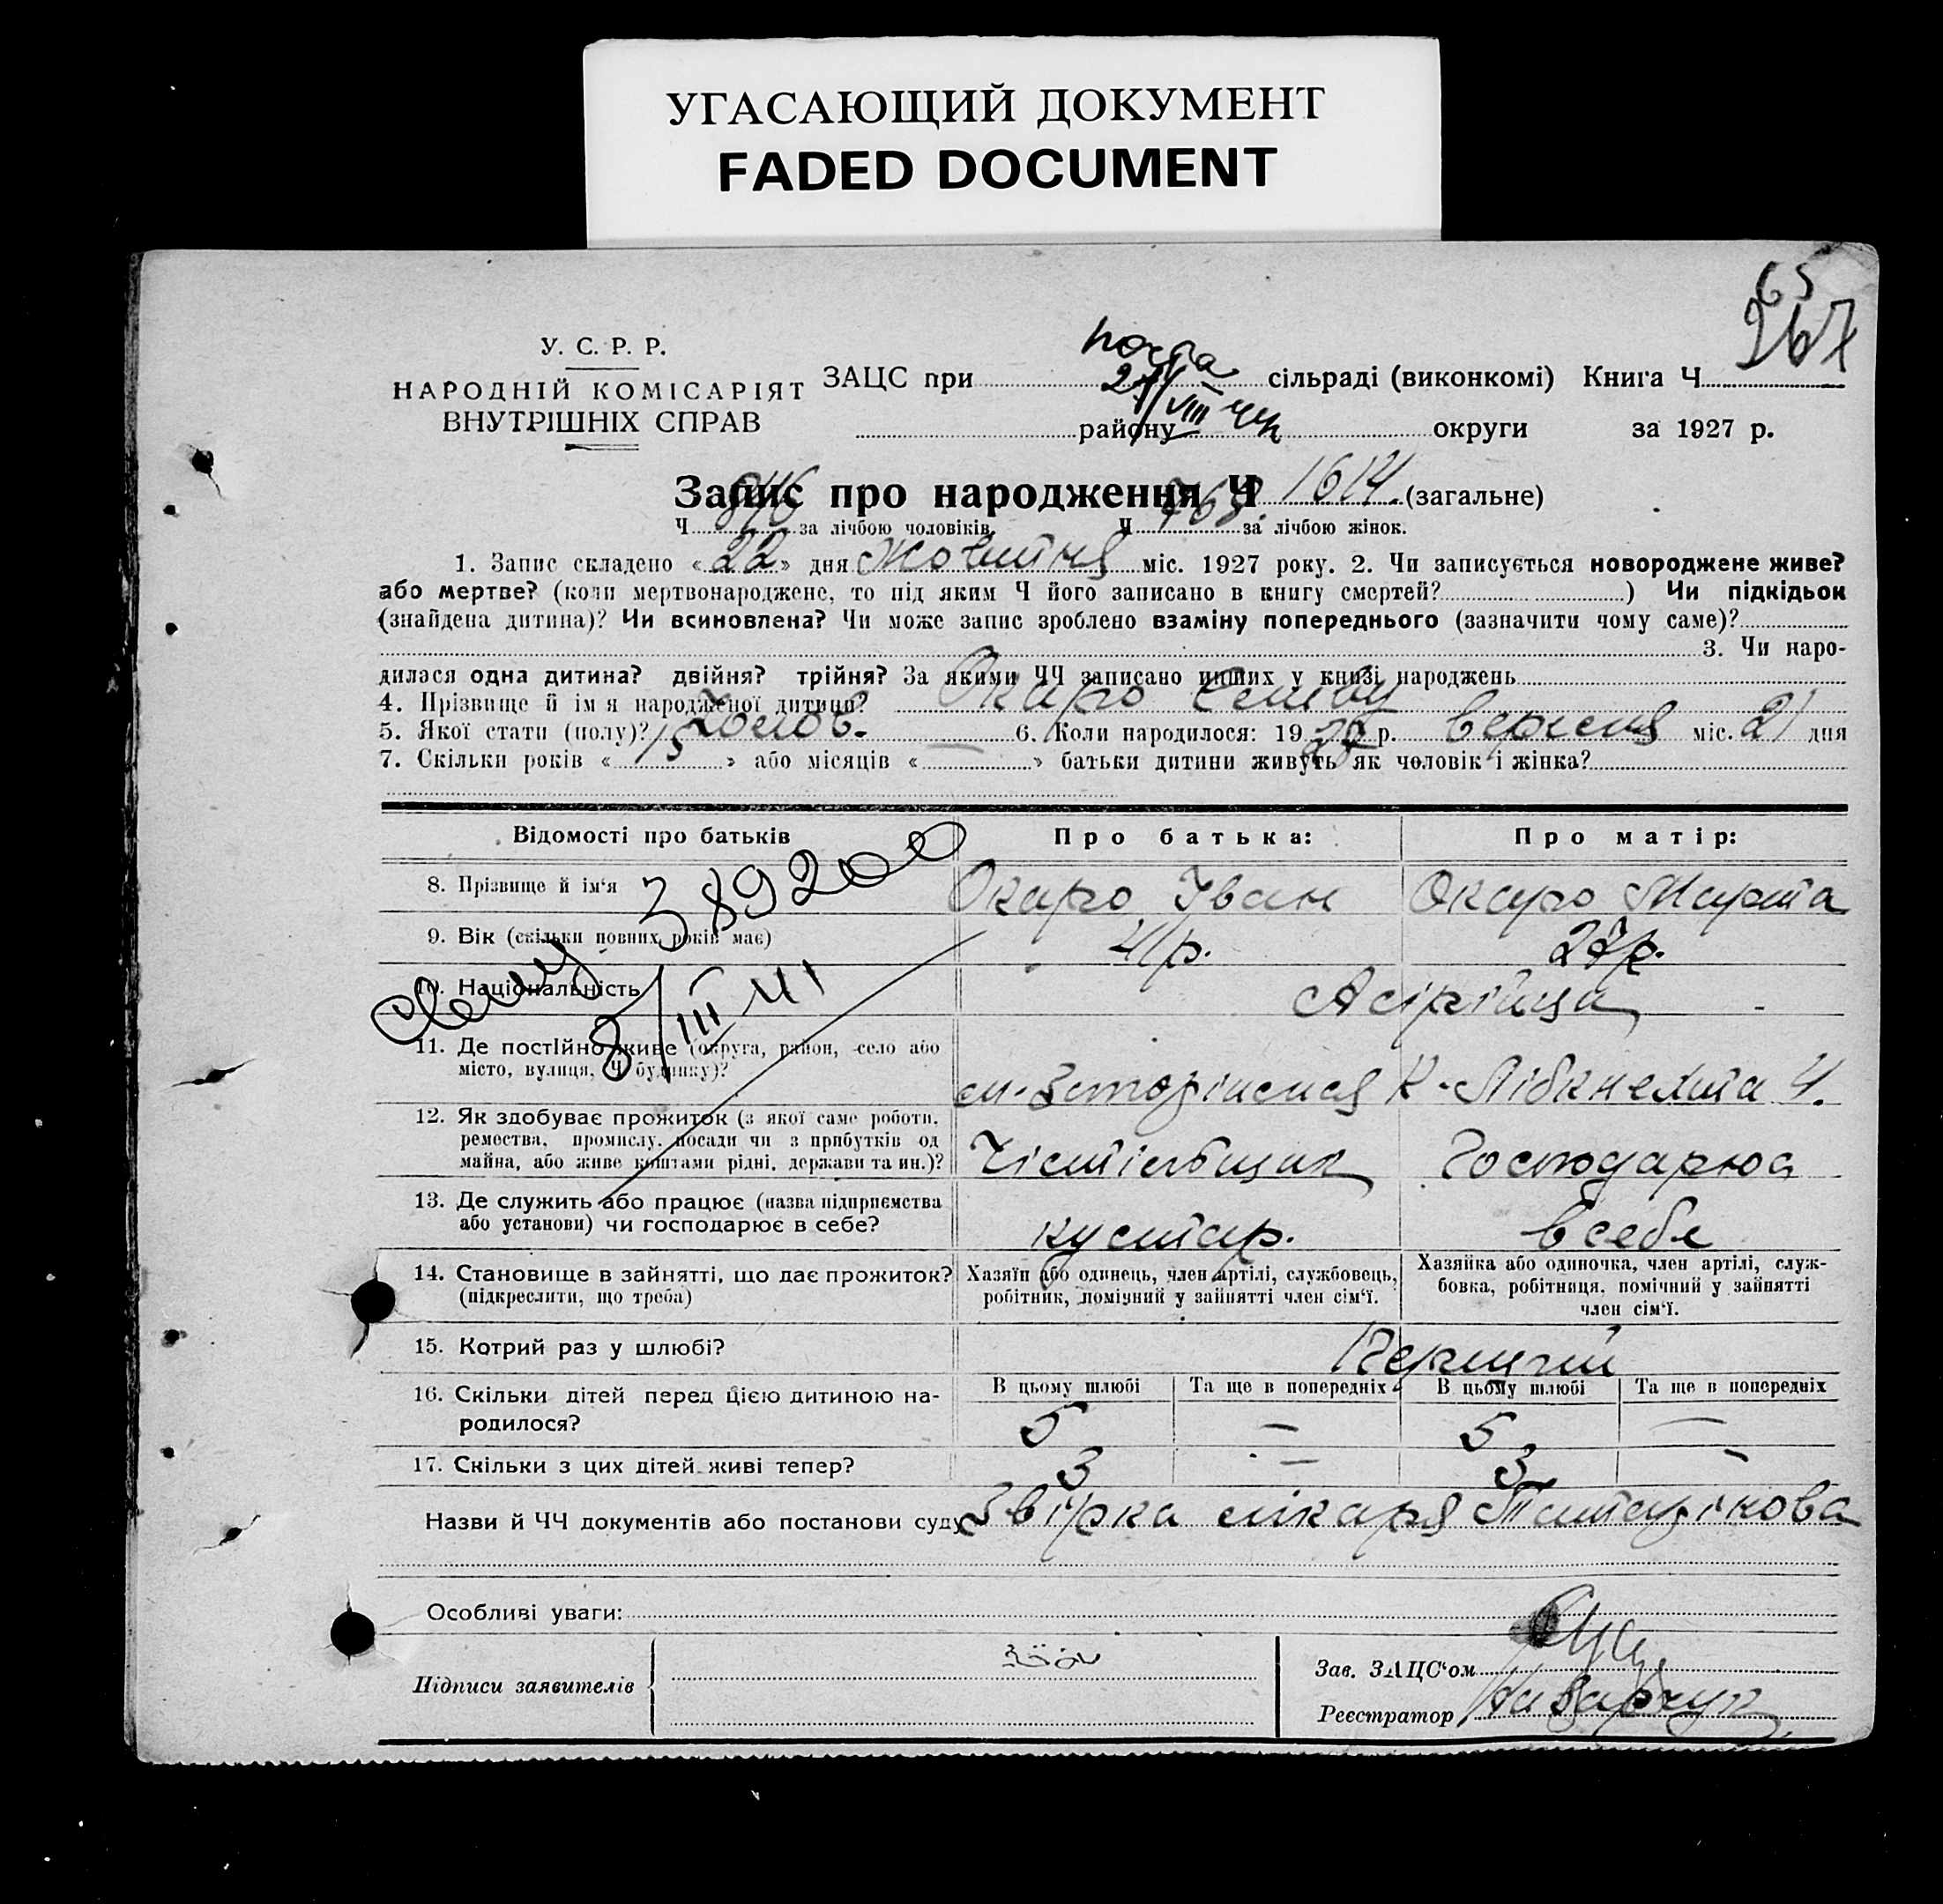 УГАСАЮЩИЙ ДОКУМЕНТ
FADED DOCUMENT
65
267
У. С. Р. Р.
НАРОДНІЙ КОМІСАРІЯТ
ВНУТРІШНІХ СПРАВ
ЗАЦС при сільраді (виконкомі) Книга Ч.
району округи за 1927 р.
Запис про народження Ч 1614. (загальне)
Ч 846 за лічбою чоловіків. Ч 768. за лічбою жінок.
1. Запис складено « 22 » дня Жовтня міс. 1927 року. 2. Чи записується новороджене живе?
або мертве? (коли мертвонароджене, то під яким Ч його записано в книгу смертей? ) Чи підкідьок
(знайдена дитина)? Чи всиновлена? Чи може запис зроблено взаміну попереднього (зазначити чому саме)?
3. Чи наро-
дилася одна дитина? двійня? трійня? За якими ЧЧ записано инших у книзі народжень
4. Прізвище й ім'я народженої дитини? Окаро
5. Якої стати (полу)? Чолов. 6. Коли народилося: 19 27 р. Вересня міс. 21 дня
7. Скільки років « 15 » або місяців « — » батьки дитини живуть як чоловік і жінка?
Відомості про батьків Про батька: Про матір:
8. Прізвище й ім'я Окаро Іван Окаро Марта
389200
9. Вік (скільки повних років має) 41 р. 27 р.
10. Національність Асірійця
8/III 41
11. Де постійно живе (округа, район, село або
місто, вулиця, Ч будинку)? К-Лібкнехта 4.
12. Як здобуває прожиток (з якої саме роботи,
ремества, промислу, посади чи з прибутків од
майна, або живе коштами рідні, держави та ин.)? Чістільщик Господарює
13. Де служить або працює (назва підприємства
або установи) чи господарює в себе? кустар. в себе
14. Становище в зайнятті, що дає прожиток?
(підкреслити, що треба)
Хазяїн або одинець, член артілі, службовець,
робітник, помічний у зайнятті член сім'ї.
Хазяйка або одиночка, член артілі, служ-
бовка, робітниця, помічний у зайнятті
член сім'ї.
15. Котрий раз у шлюбі? Перший
16. Скільки дітей перед цією дитиною на-
родилося?
В цьому шлюбі Та ще в попередніх В цьому шлюбі Та ще в попередніх
5 — 5 —
17. Скільки з цих дітей живі тепер? 3 — 3 -
Назви й ЧЧ документів або постанови суду лікаря
Особливі уваги:
Підписи заявителів
Зав. ЗАЦС'ом
Реєстратор